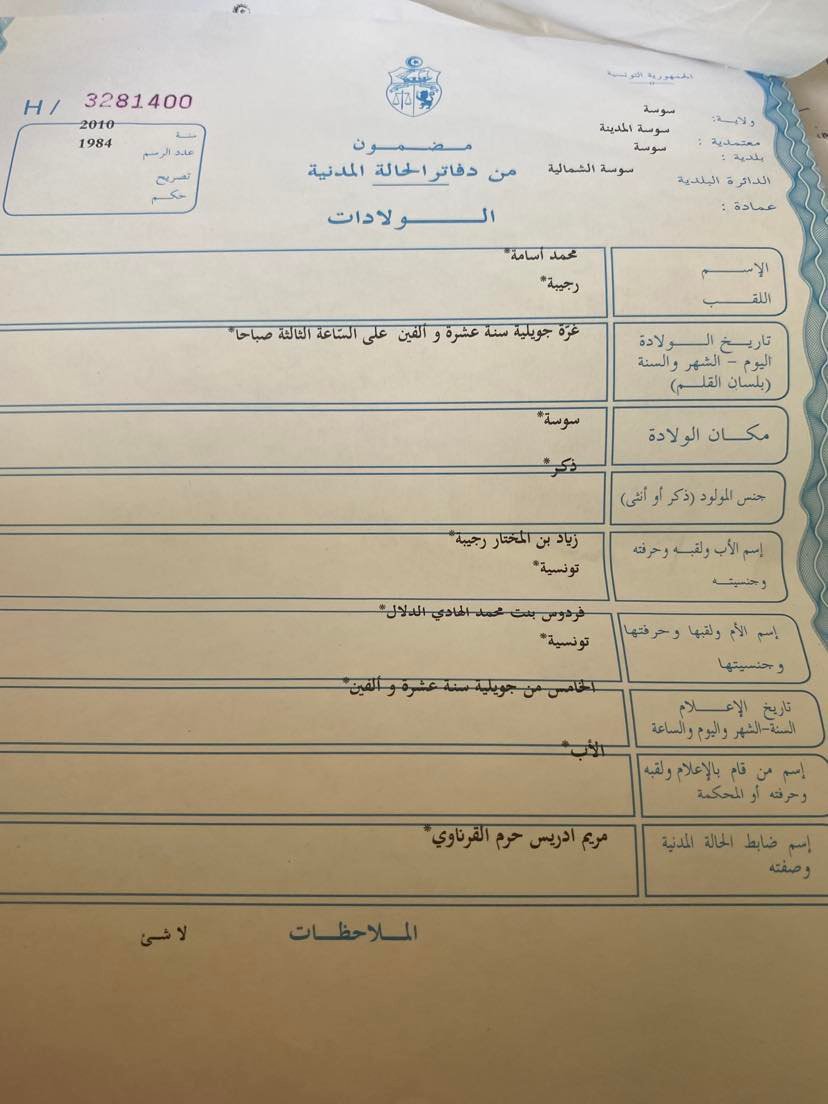 الجمهورية التونسية
ولايـة: سوسة
معتمدية : سوسة المدينة
بلدية : سوسة
الدائرة البلدية سوسة الشمالية
عمادة :
مـضـمـون
من دفاتر الحالة المدنية
الـولادات
H / 3281400
سنة 2010
عدد الرسم 1984
تصريح
حكـم
الإسـم محمد أسامة*
اللقـب رجيبة*
تاريـخ الـولادة غرّة جويلية سنة عشرة و ألفين على السّاعة الثالثة صباحا*
اليوم – الشهر والسنة
(بلسان القلـم)
مكـان الولادة سوسة*
جنس المولود (ذكر أو أنثى) ذكر*
إسم الأب ولقبـه وحرفته زياد بن المختار رجيبة*
وجنسيتـه تونسية*
إسم الأم ولقبها وحرفتها فردوس بنت محمد الهادي الدلال*
وجنسيتها تونسية*
تاريخ الإعـلام الخامس من جويلية سنة عشرة و ألفين*
السنة-الشهر واليوم والساعة
إسم من قام بالإعلام ولقبه الأب*
وحرفته أو المحكمة
إسم ضابط الحالة المدنية مريم ادريس حرم القرناوي*
وصفته
المـلاحظـات
لا شئ